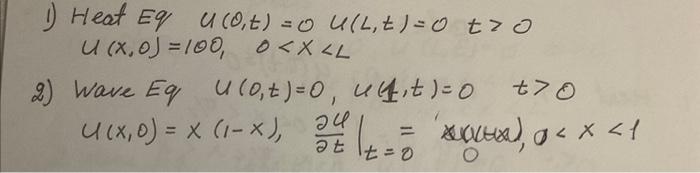 1) Heat Eq U(0,t)=0 U(L,t)=0 t>0
U(x,0)=100, 0<x<L
2) Wave Eq U(0,t)=0, u(1,t)=0 t>0
U(x,0) = x (1-x), ∂u/∂t |t=0 = 0, 0<x<1